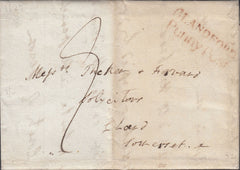 BLANDFORD
Penny Post
Messrs Tucker &
Solicitors
Chard
Somerset